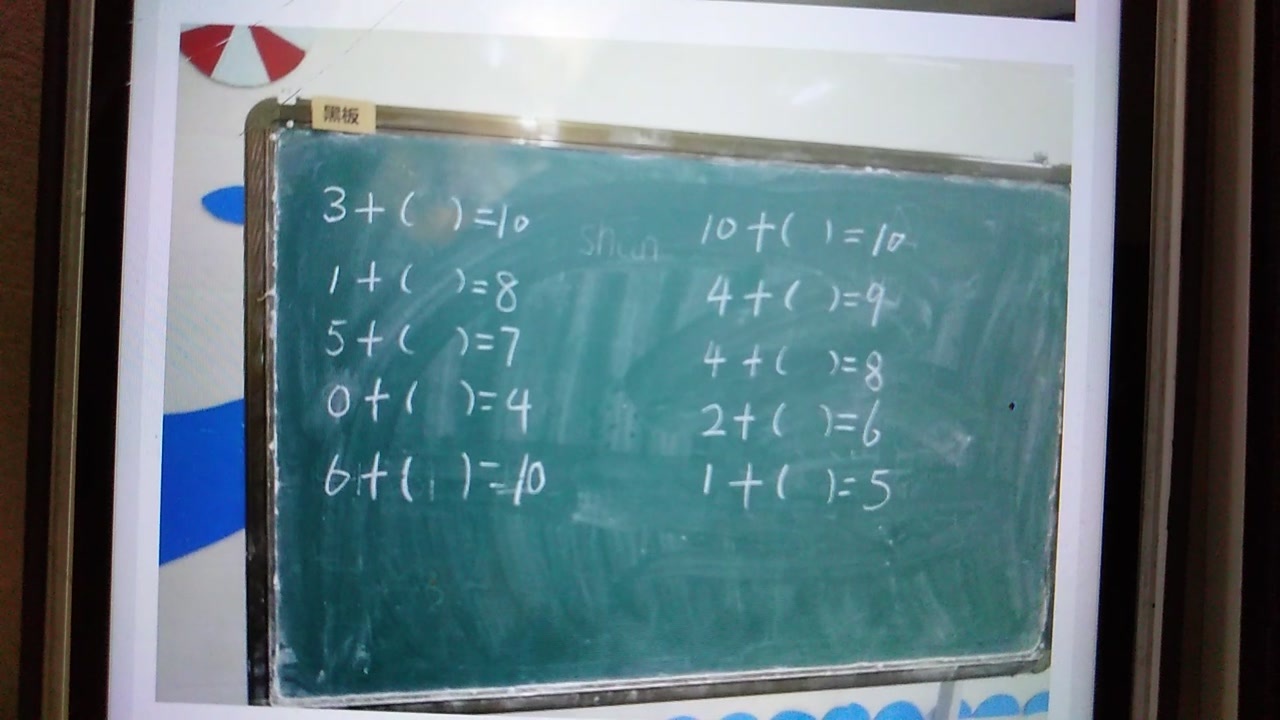 黑板
3+( )=10
1+( )=8
5+( )=7
0+( )=4
6+( )=10
shun
10+( )=10
4+( )=9
4+( )=8
2+( )=6
1+( )=5